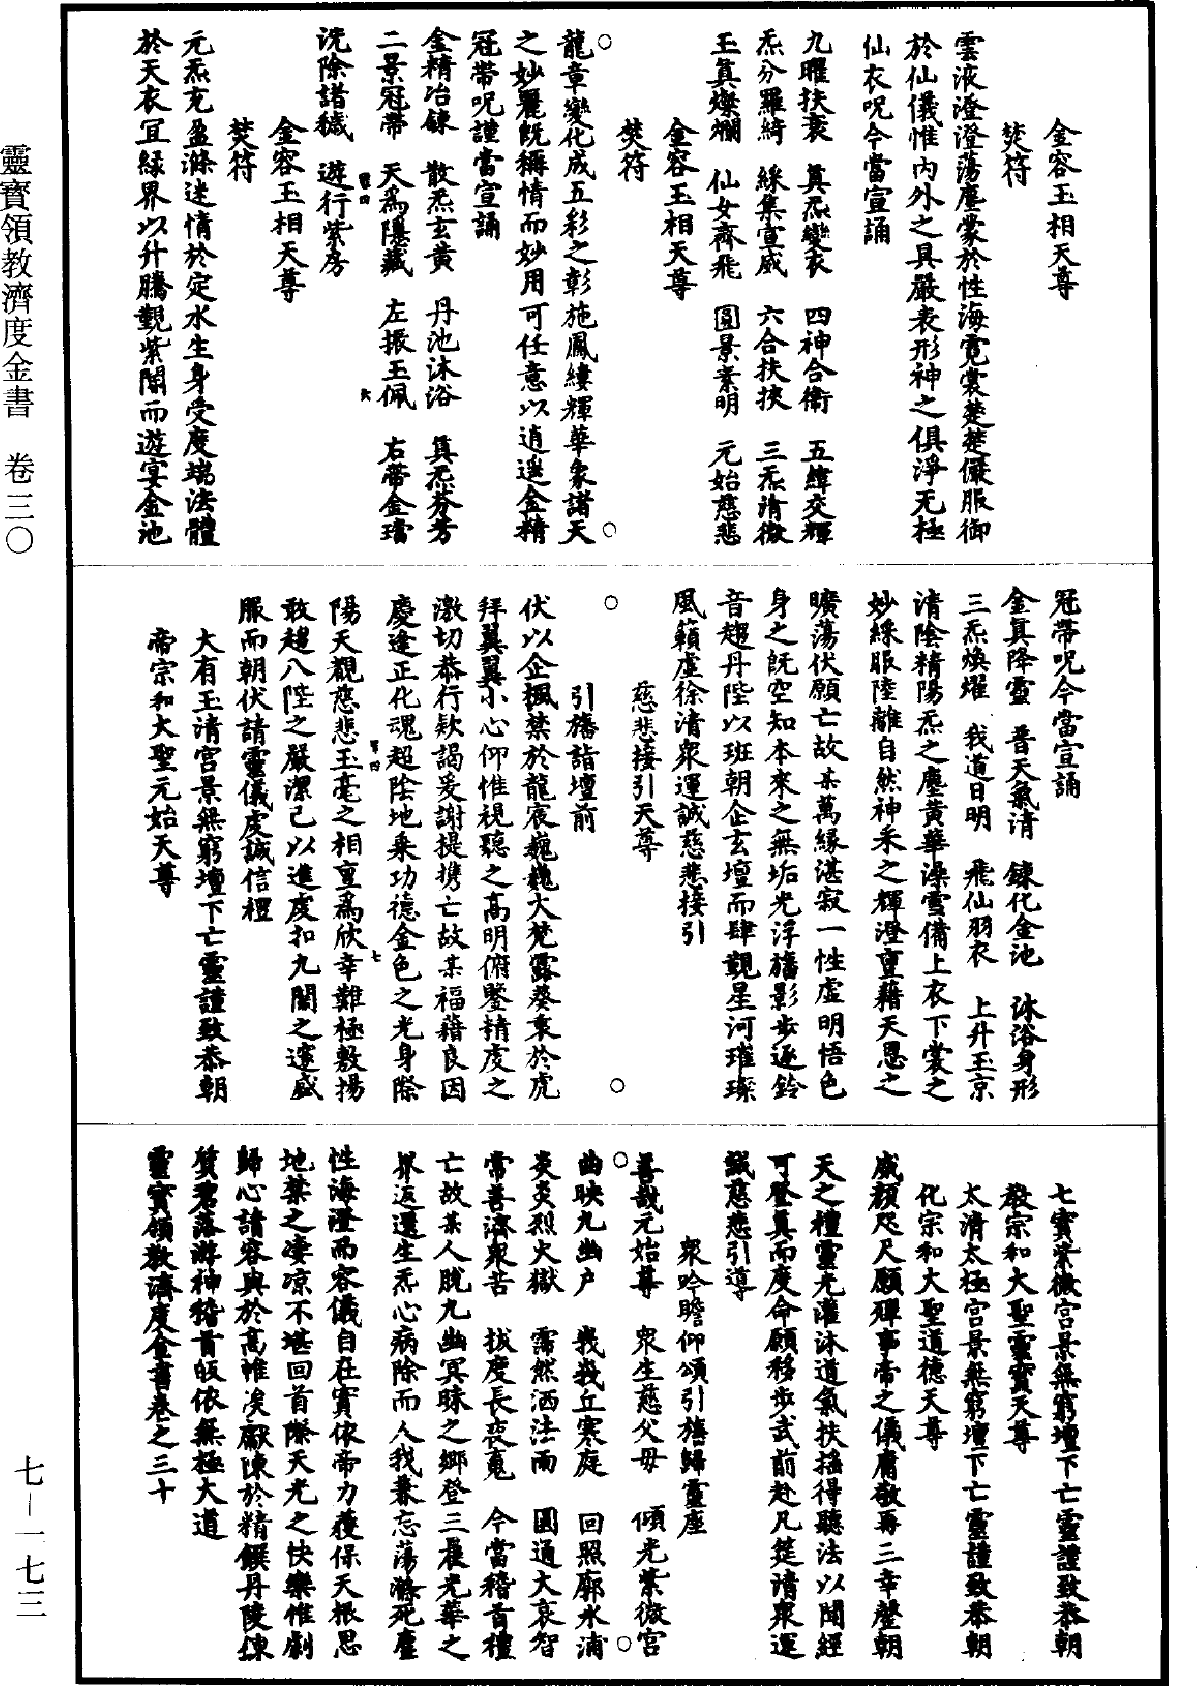 金容玉相天尊
焚符
雲液澄澄蕩塵蒙於性海霓裳楚楚儼服御
於仙儀惟內外之具嚴表形神之俱淨无極
仙衣呪今當宣誦
九曜扶衰　真炁變衣　四神合衛　五緯交輝
炁分羅綺　綵集宣威　六合扶挾　三炁清微
玉真燦爛　仙女齊飛　圓景素明　元始慈悲
金容玉相天尊
焚符
龍章變化成五彩之彰施鳳縷輝華象諸天
之妙麗既稱情而妙用可任意以逍遙金精
冠帶呪謹當宣誦
金精冶鍊　散炁玄黃　丹池沐浴　真炁芬芳
二景冠帶　天為隱藏　左振玉佩　右帶金璫
洗除諸穢　遊行紫房
金容玉相天尊
焚符
元炁充盈滌迷情於定水生身受度端法體
於天衣宜緣界以升騰覲紫闕而遊宴金池
冠帶呪今當宣誦
金真降靈　普天氣清　鍊化金池　沐浴身形
三炁煥耀　我道日明　飛仙羽衣　上升玉京
清陰精陽炁之塵黃華澡雪備上衣下裳之
妙綵服陸離自然神釆之輝澄亶藉天恩之
曠蕩伏願亡故某萬緣湛寂一性虛明悟色
身之既空知本來之無垢光浮旛影步逐鈴
音趨丹陛以班朝企玄壇而肆覲星河璀璨
風籟虛徐清眾運誠慈悲接引
慈悲接引天尊
引旛詣壇前
伏以企楓禁於龍宸巍巍大梵露葵秉於虎
拜翼翼小心仰惟視聽之高明俯鑒精虔之
激切恭行欵謁爰謝提携亡故某福藉良因
慶逢正化魂超陰地乘功德金色之光身際
陽天覩慈悲玉毫之相亶為欣幸難極敷揚
敢趨八陛之嚴潔己以進虔扣九關之邃盛
服而朝伏請靈儀虔誠信禮
大有玉清宮景無窮壇下亡靈謹致恭朝
帝宗和大聖元始天尊
七寶紫微宮景無窮壇下亡靈謹致恭朝
教宗和大聖靈寶天尊
太清太極宮景無窮壇下亡靈謹致恭朝
化宗和大聖道德天尊
威顏咫尺願殫事帝之儀膚敬再三幸罄朝
天之禮靈光灌沐道氣扶搖得聽法以聞經
可登真而度命願移步武前赴凡筵清眾運
誠慈悲引導
眾吟瞻仰頌引旛歸靈座
善哉元始尊　眾生慈父母　傾光紫微宮
曲映九幽戶　峩峩丘寒庭　回照廓水浦
炎炎烈火獄　霈然洒法雨　圓通大哀智
常善濟眾苦　拔度長夜䰟　今當稽首禮
亡故某人脫九幽冥昧之鄉登三晨光華之
界返還生炁心病除而人我兼忘蕩滌死塵
性海澄而容儀自在實依帝力獲保天根思
地禁之淒凉不堪回首際天光之快樂惟劇
歸心請容與於高帷俟歆陳於精饌丹陵煉
質碧落游神稽首皈依無極大道
靈寶領教濟度金書卷之三十
靈寶領教濟度金書　卷三〇
七－一七三